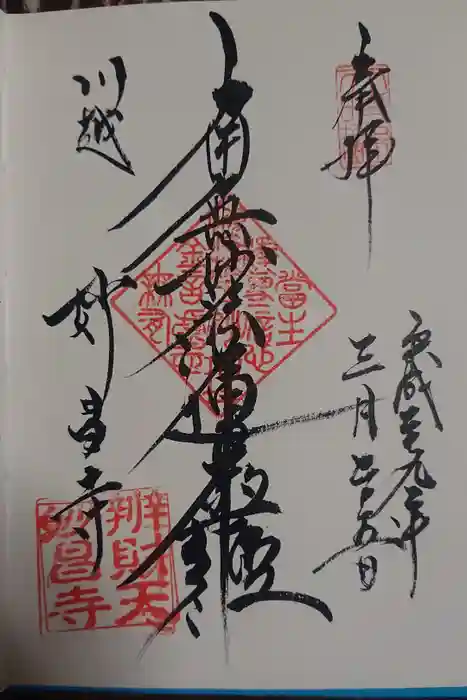 奉拝
平成二十九年
三月二十五日
南無妙法蓮華經
川越
妙昌寺
辨財天
妙昌寺